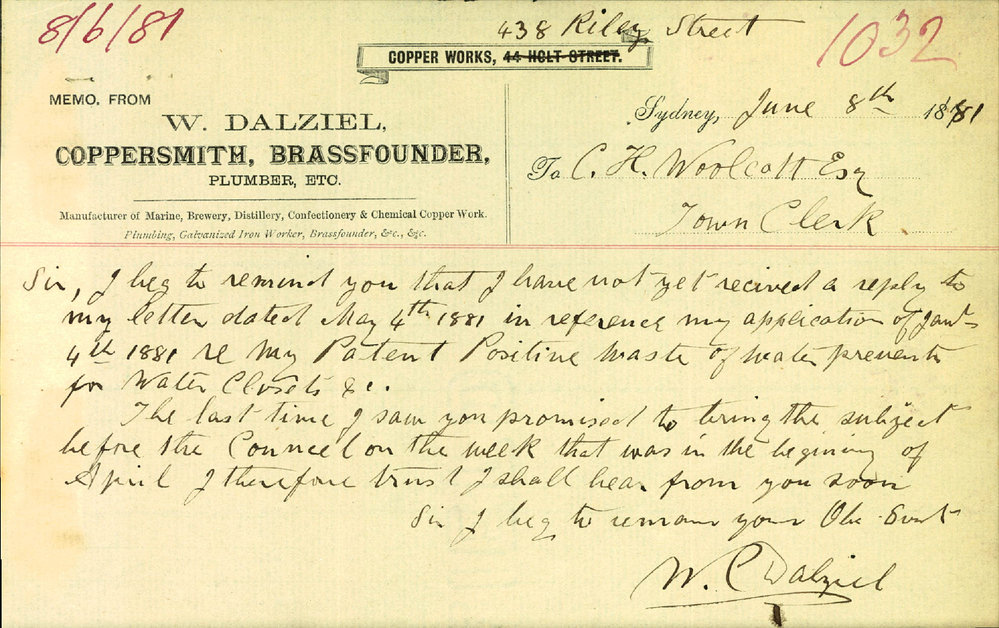 8/6/81
438 Riley Street
1032
COPPER WORKS, 44 HOLT STREET.
MEMO. FROM
W. DALZIEL,
COPPERSMITH, BRASSFOUNDER,
PLUMBER, ETC.
Manufacturer of Marine, Brewery, Distillery, Confectionery & Chemical Copper Work.
Plumbing, Galvanized Iron Worker, Brassfounder, &c., &c.
Sydney, June 8th 1881
To C. H. Woolcott Esq
Town Clerk
Sir, I beg to remind you that I have not yet recived a reply to
my letter dated May 4th 1881 in reference my application of Jany
4th 1881 re my Patent Positive waste of water preventr
for Water Closets &c.
The last time I saw you promised to bring the subject
before the Councel on the week that was in the begining of
April I therefore trust I shall hear from you soon
Sir I beg to remain your Obe Svnt
W. C Dalziel